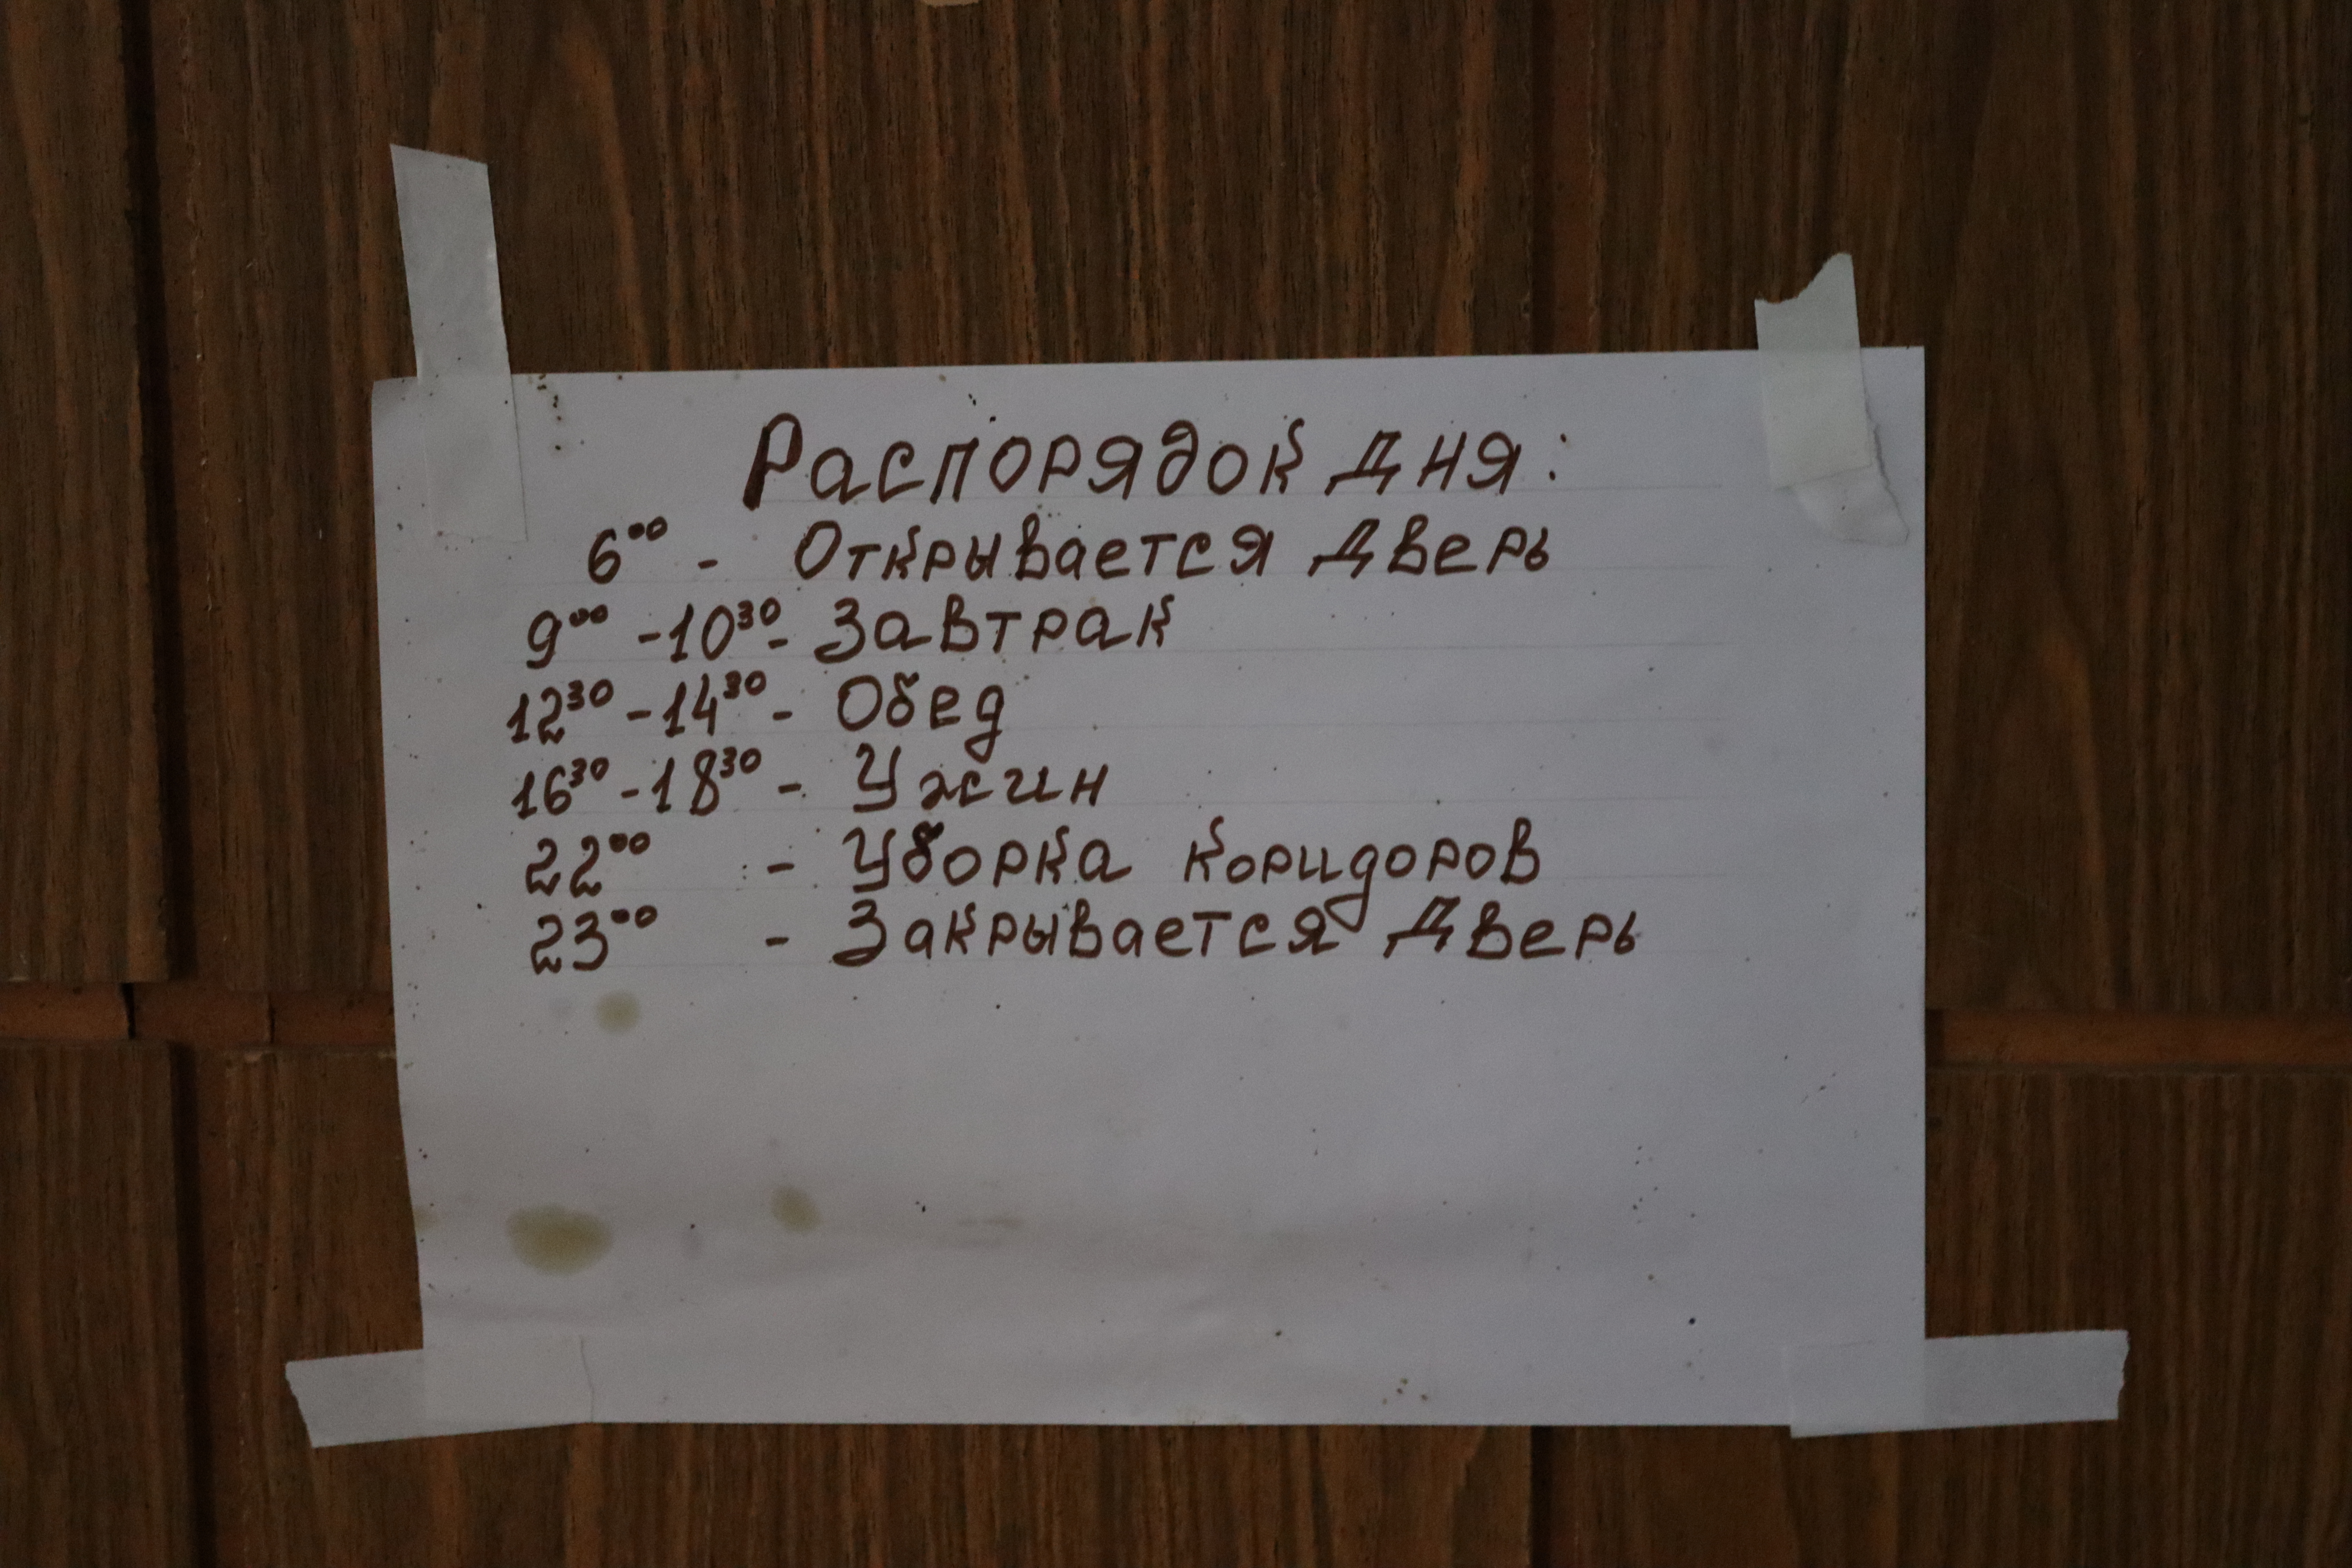 Распорядок дня:
6⁰⁰ - Открывается дверь
9⁰⁰ - 10³⁰ - Завтрак
12³⁰ - 14³⁰ - Обед
16³⁰ - 18³⁰ - Ужин
22⁰⁰ - Уборка коридоров
23⁰⁰ - Закрывается дверь